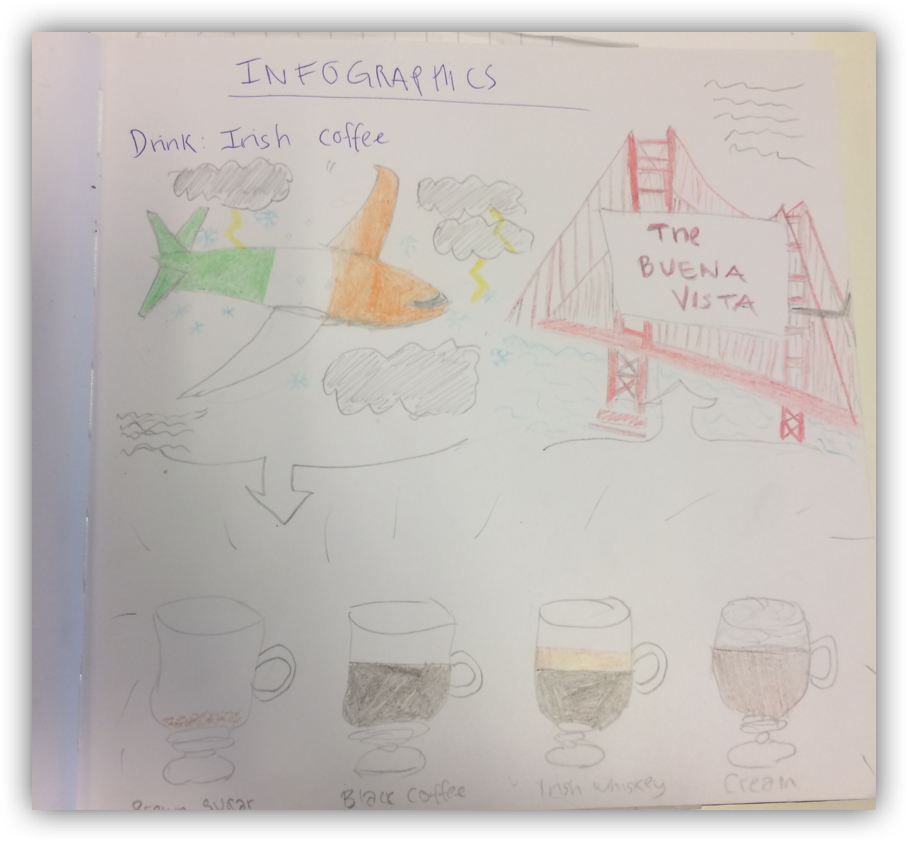 INFOGRAPHICS
Drink: Irish coffee
The
BUENA
VISTA
Brown sugar
Black Coffee
Irish whiskey
Cream